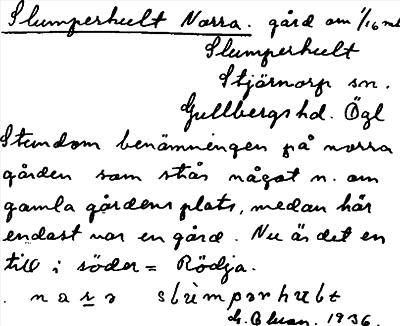 Slumperhult Norra. gård om 1/16 mtl
Slumperhult
Stjärnorp sn.
Gullbergs hd. Ögl
Stundom benämningen på norra
gården som står något n. om
gamla gårdens plats, medan här
endast var en gård. Nu är det en
till i söder = Rödja.